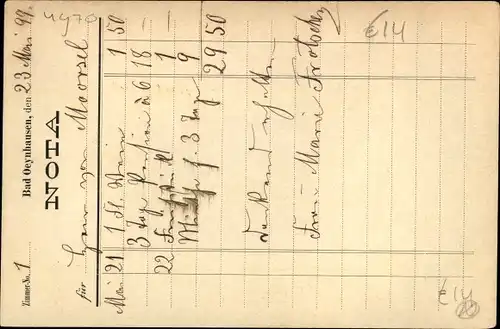 4470
€14
Zimmer No. 1
Bad Oeynhausen, den 23 Mai 99.
NOTA
für Herrn von Moorsel
Mai 21 1 Fl. Wein 1 50
3 Tage Pension à 6 18 —
22 Frühstück 1 —
3 Tage 9
29 50
Dankend erhalten
Frau Marie
€14